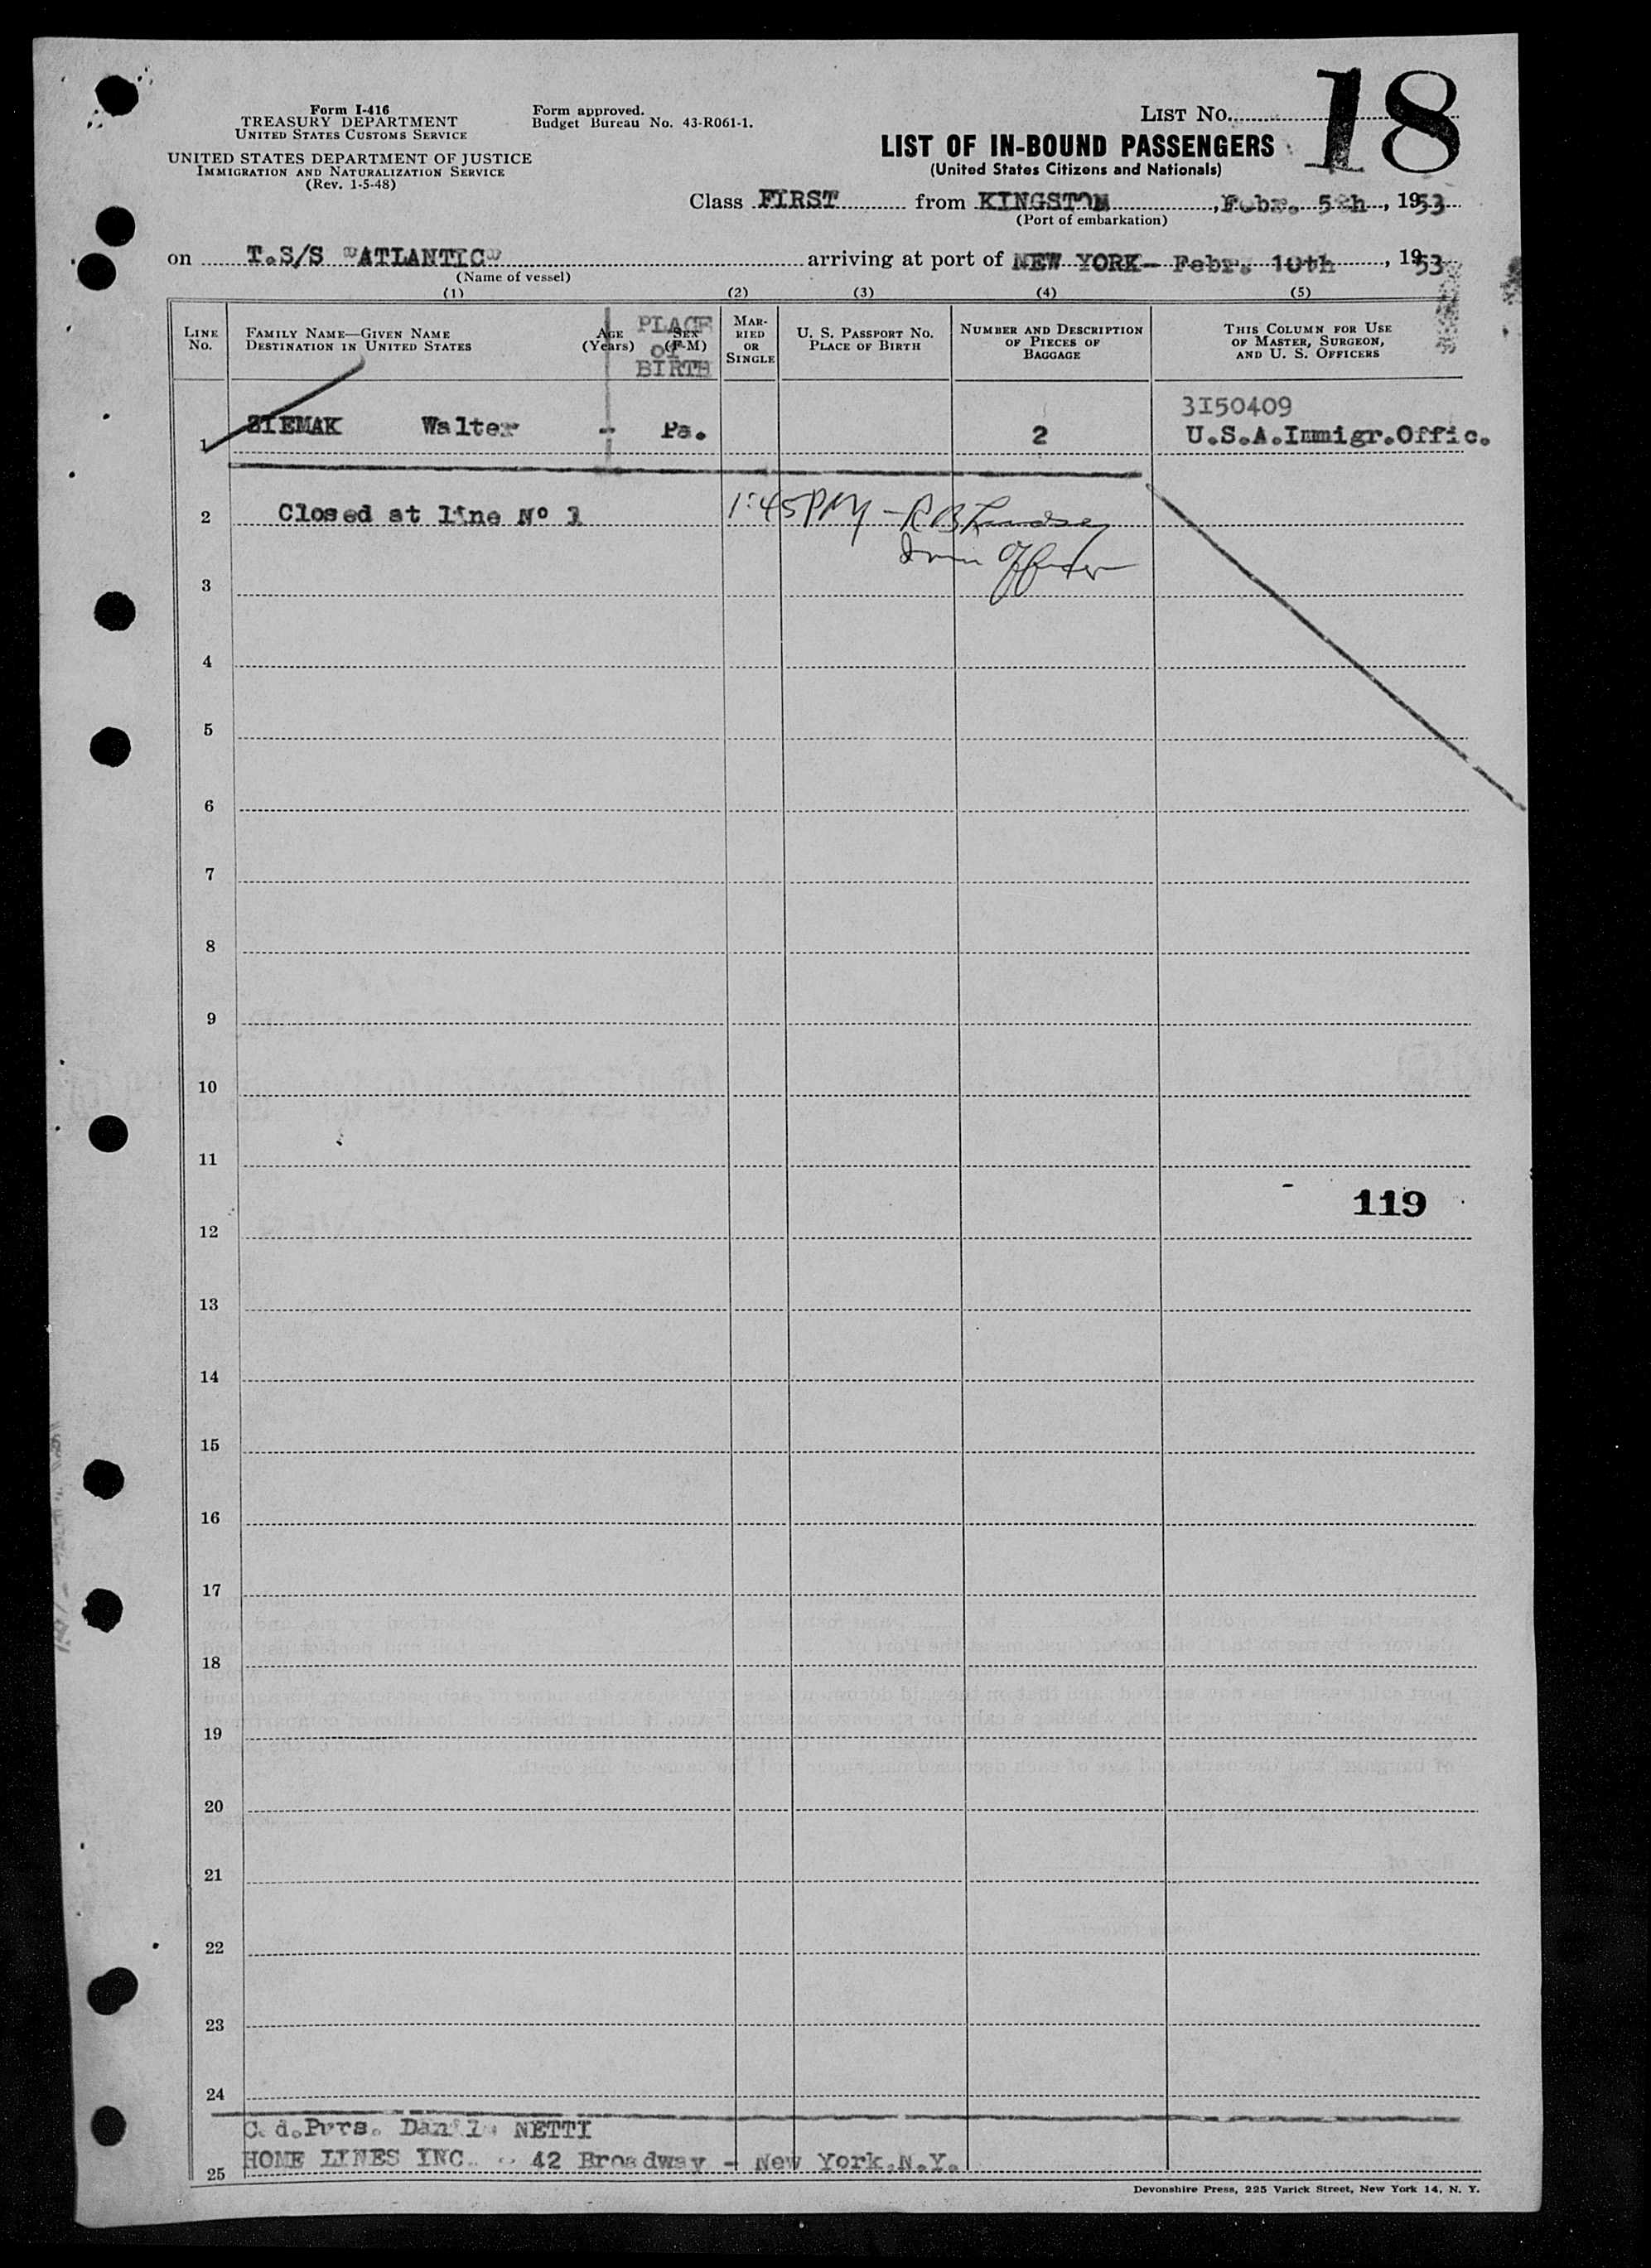 18
Form I-416
TREASURY DEPARTMENT
UNITED STATES CUSTOMS SERVICE
UNITED STATES DEPARTMENT OF JUSTICE
IMMIGRATION AND NATURALIZATION SERVICE
(Rev. 1-5-48)
Form approved.
Budget Bureau No. 43-R061-1.
LIST NO.
LIST OF IN-BOUND PASSENGERS
(United States Citizens and Nationals)
Class FIRST from KINGSTON, Febr. 5th, 1953
(Port of embarkation)
on T.S/S "ATLANTIC" arriving at port of NEW YORK- Febr. 10th, 1953
(Name of vessel)
(1) (2) (3) (4) (5)
LINE NO.
FAMILY NAME—GIVEN NAME
DESTINATION IN UNITED STATES
AGE (Years)
SEX (F-M)
PLACE OF BIRTH
MARRIED OR SINGLE
U. S. PASSPORT NO.
PLACE OF BIRTH
NUMBER AND DESCRIPTION OF PIECES OF BAGGAGE
THIS COLUMN FOR USE OF MASTER, SURGEON, AND U. S. OFFICERS
3I50409
1 ZIEMAK Walter - Pa. 2 U.S.A.Immigr.Offic.
2 Closed at line Nº 1 1:45PM - R B Lindsey
Imm Officer
3
4
5
6
7
8
9
10
11
119
12
13
14
15
16
17
18
19
20
21
22
23
24
C.d.Purs. Danilo NETTI
25 HOME LINES INC. - 42 Broadway - New York.N.Y.
Devonshire Press, 225 Varick Street, New York 14, N. Y.